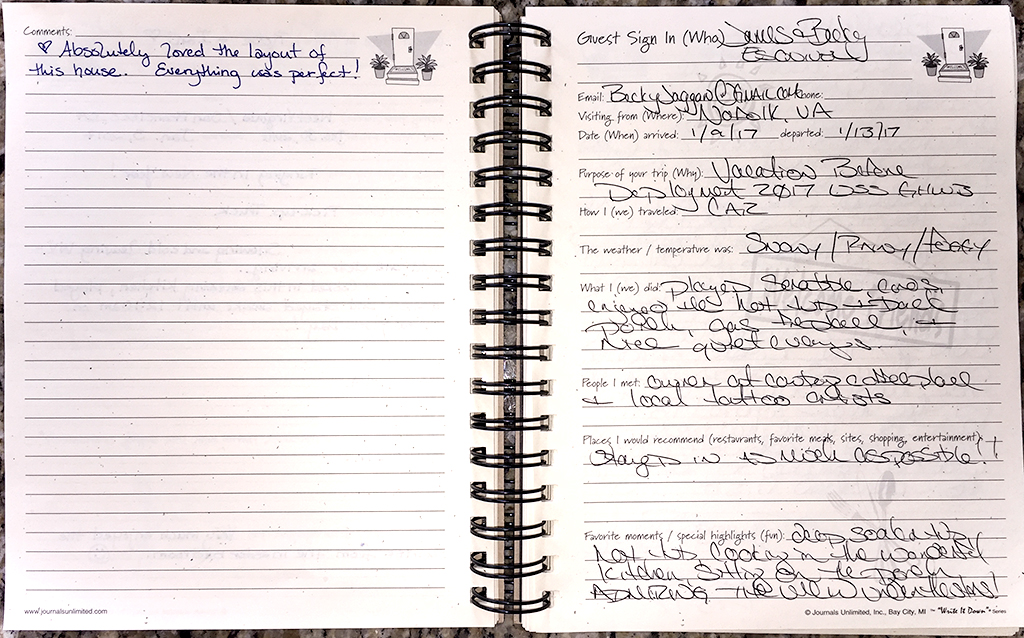 Comments:
♡ Absolutely loved the layout of
this house. Everything was perfect!
www.journalsunlimited.com
Guest Sign In (Who) James & Becky
Email: BeckyJaggan@GMAIL.COM Phone:
Visiting from (Where): Norfolk, VA
Date (When) arrived: 1/9/17 departed: 1/13/17
Purpose of your trip (Why): Vacation Before
Deployment 2017 USS GHWB
How I (we) traveled: CAR
The weather / temperature was: Snowy / Rainy / foggy
What I (we) did: Played Scrabble, cards,
enjoyed the hot tub + back
porch, gas fireplace, +
nice quiet evenings.
People I met: owner of coffee place
+ local tattoo artists
Places I would recommend (restaurants, favorite meals, sites, shopping, entertainment):
Stayed in as much as possible!!
Favorite moments / special highlights (fun): deep soaker tub,
hot tub, Cooking in the wonderful
Kitchen, Sitting on the porch
ADMIRING the view
© Journals Unlimited, Inc., Bay City, MI ~ "Write It Down" • Series